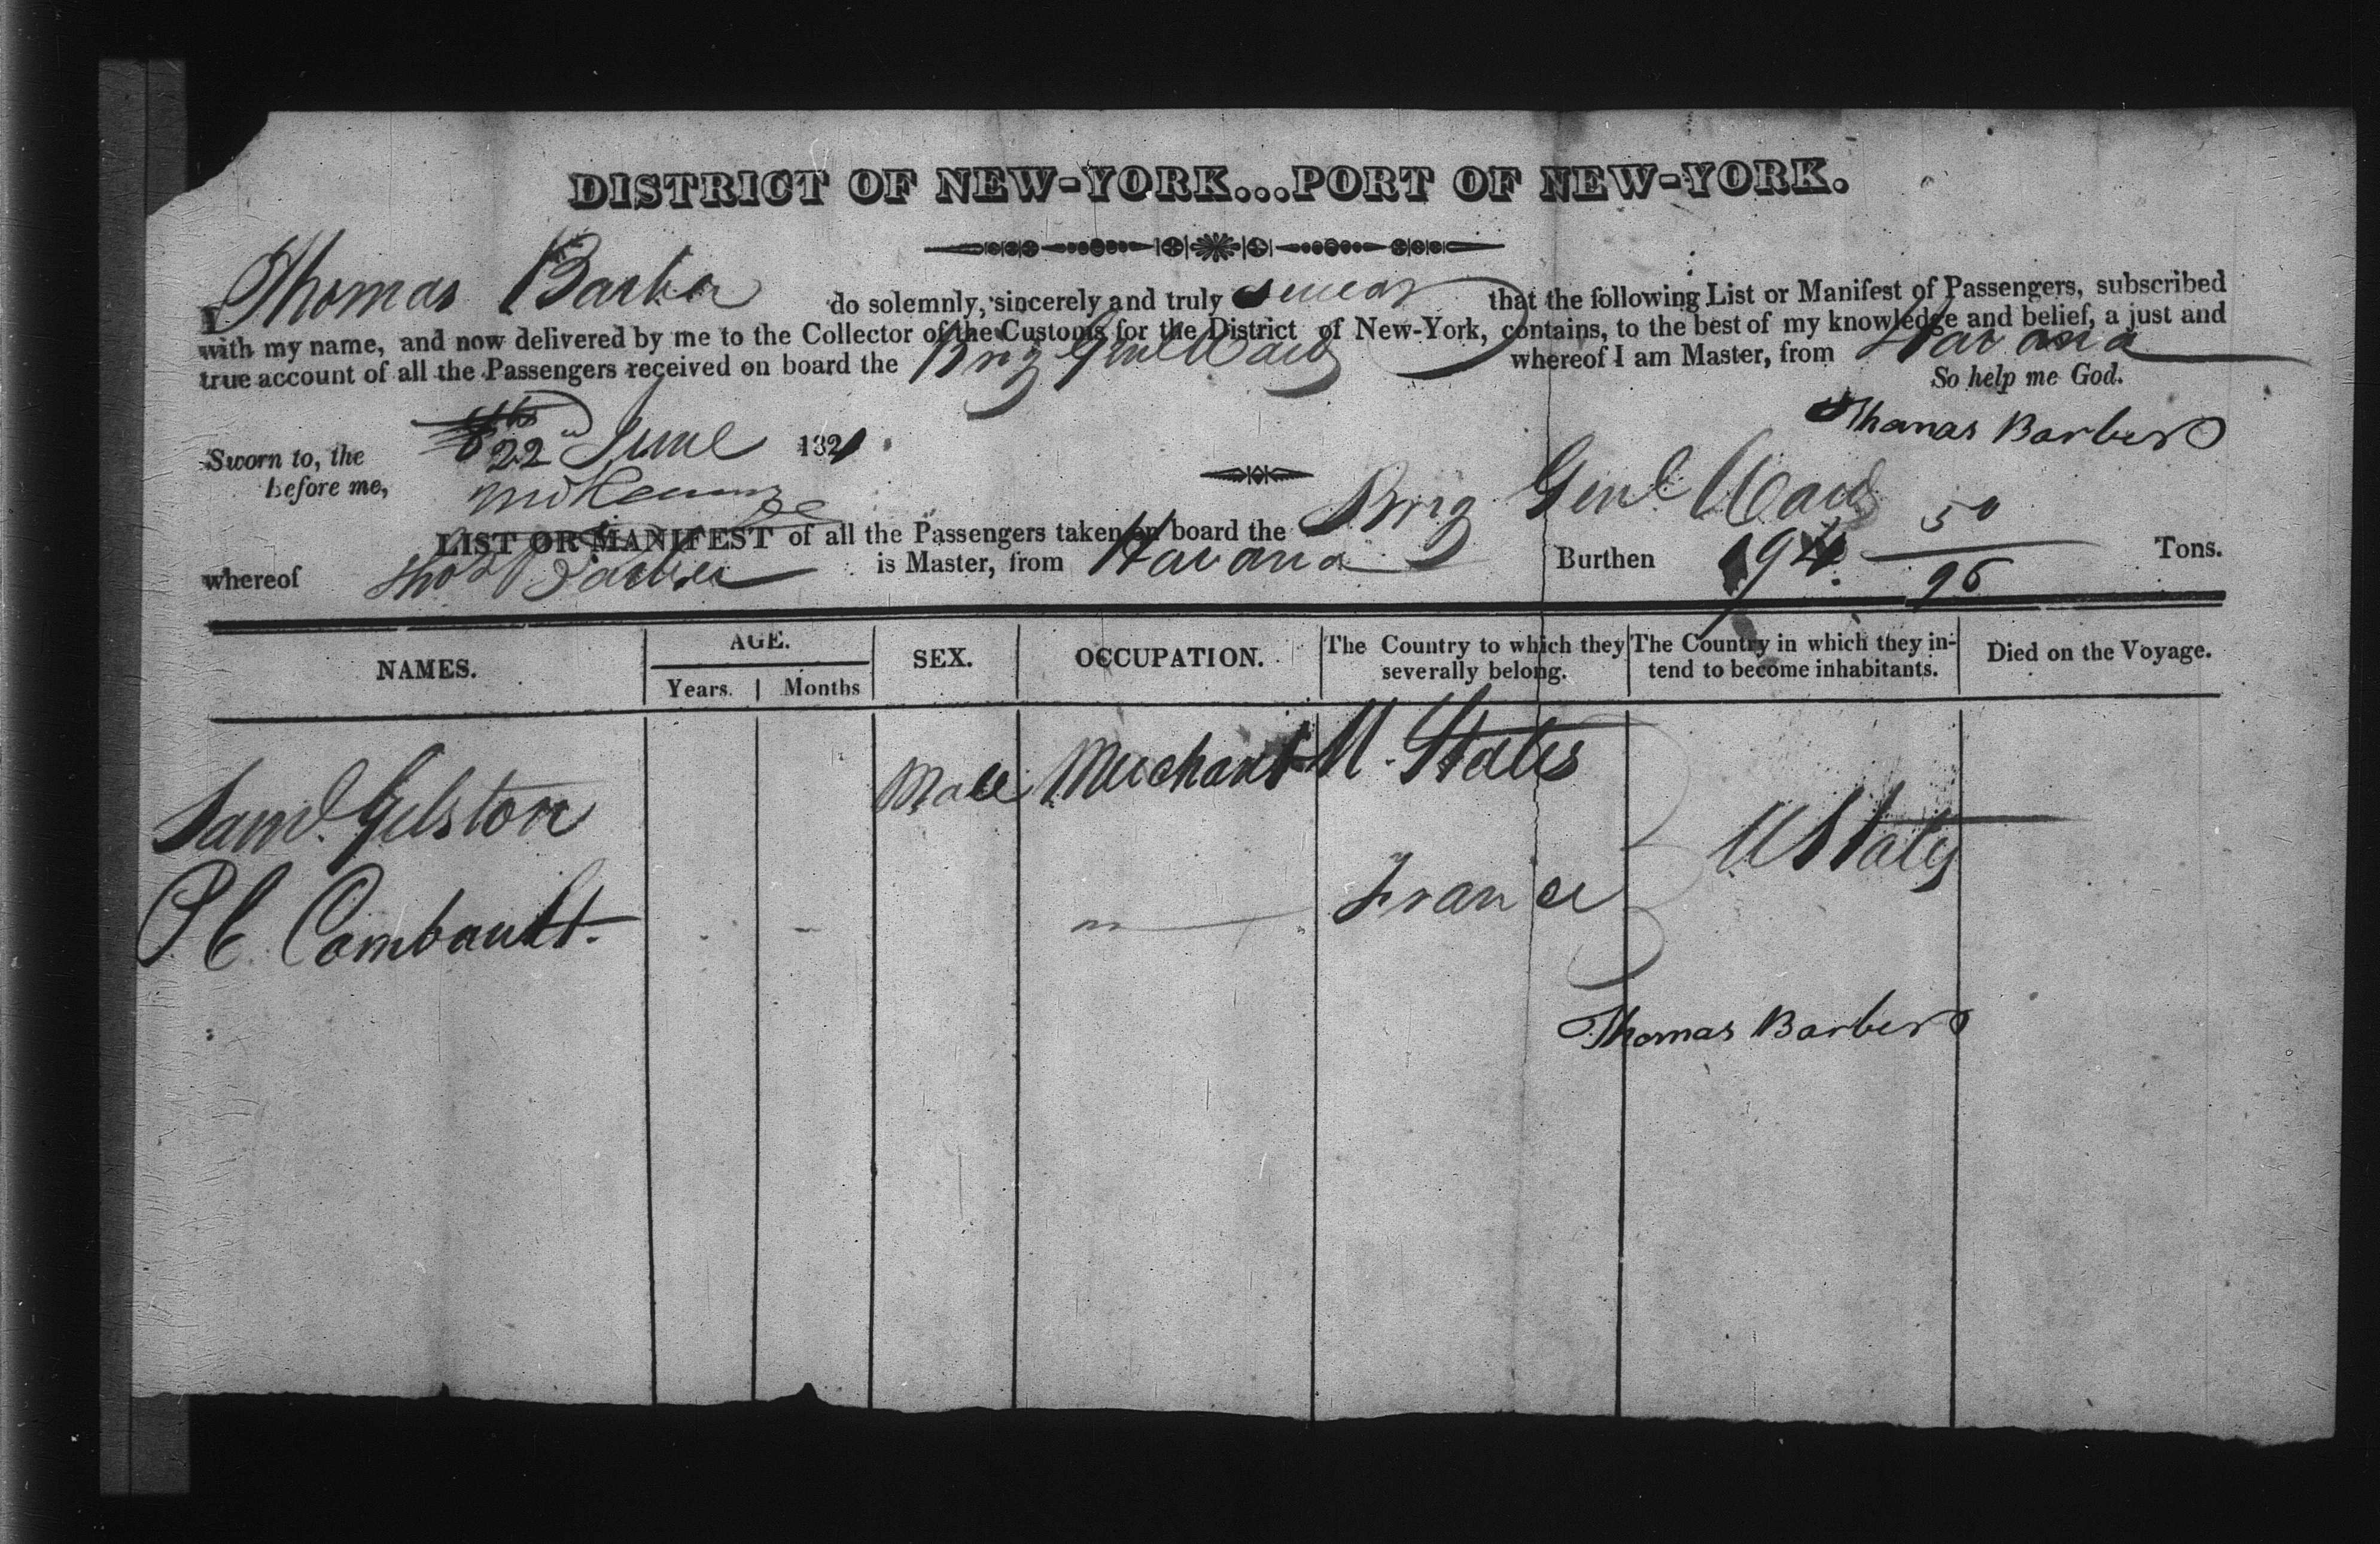 DISTRICT OF NEW-YORK...PORT OF NEW-YORK.
I Thomas Barber do solemnly, sincerely and truly swear that the following List or Manifest of Passengers, subscribed
with my name, and now delivered by me to the Collector of the Customs for the District of New-York, contains, to the best of my knowledge and belief, a just and
true account of all the Passengers received on board the Brig Genl Ward whereof I am Master, from Havana
So help me God.
Thomas Barber
Sworn to, the 22d June 1821
before me,
LIST OR MANIFEST of all the Passengers taken on board the Brig Genl Ward
whereof Thos Barber is Master, from Havana Burthen 194 50/95 Tons.
NAMES. AGE. SEX. OCCUPATION. The Country to which they severally belong. The Country in which they intend to become inhabitants. Died on the Voyage.
Years. Months
Saml. Gelston Male Merchant U. States
U States
P. C. Combault. France
Thomas Barber